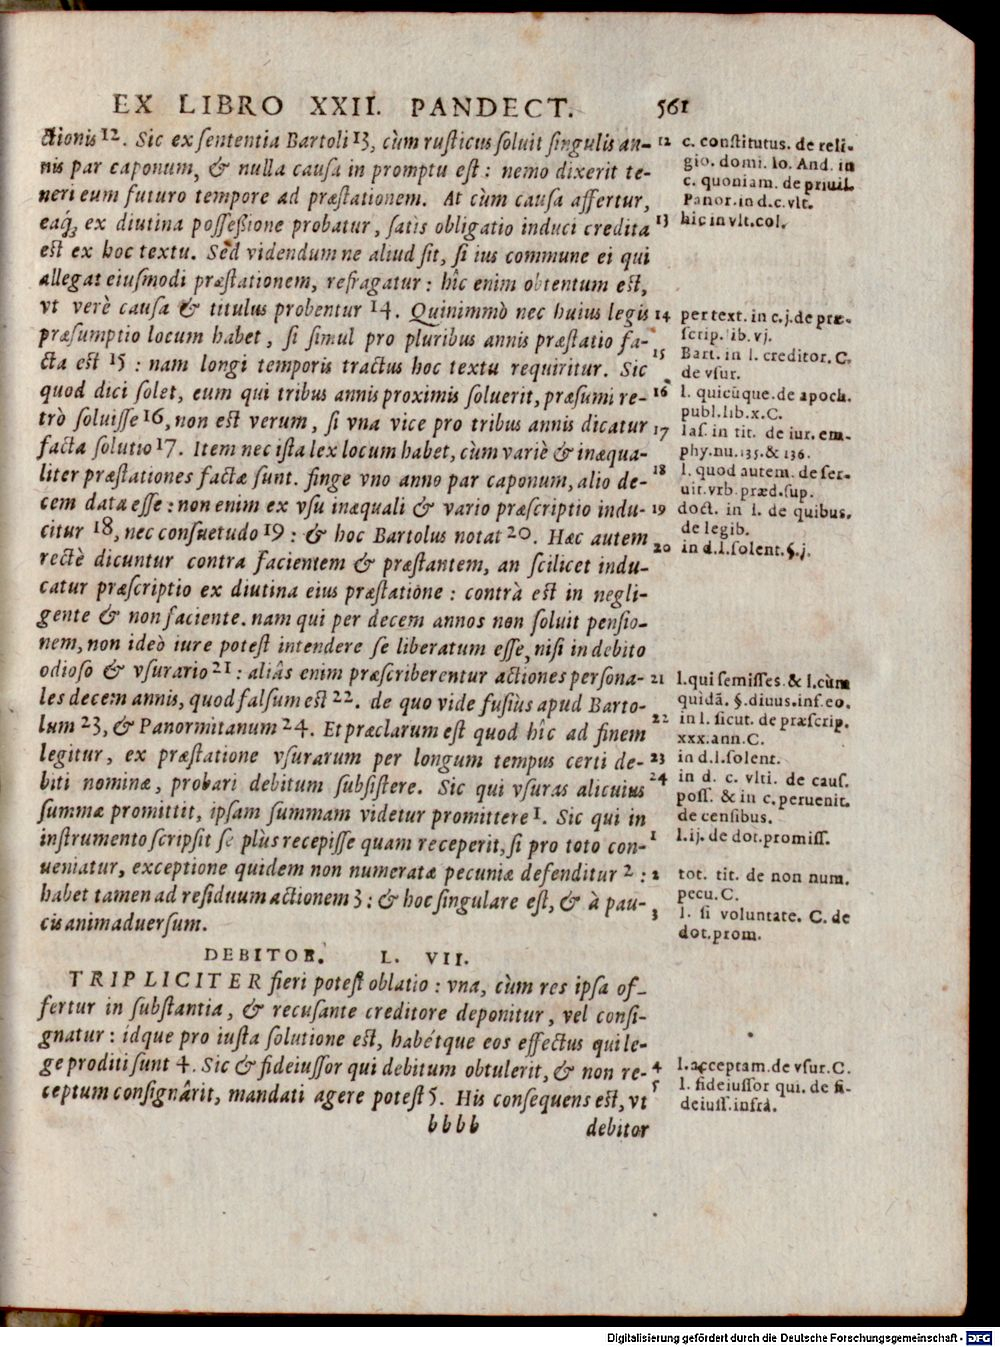 EX LIBRO XXII. PANDECT. 561
ctionis 12. Sic ex sententia Bartoli 13, cùm rusticus soluit singulis an-
nis par caponum, & nulla causa in promptu est: nemo dixerit te-
neri eum futuro tempore ad præstationem. At cùm causa affertur,
eaq́; ex diutina possessione probatur, satis obligatio induci credita
est ex hoc textu. Sed videndum ne aliud sit, si ius commune ei qui
allegat eiusmodi præstationem, refragatur: hîc enim obtentum est,
vt verè causa & titulus probentur 14. Quinimmò nec huius legis
præsumptio locum habet, si simul pro pluribus annis præstatio fa-
cta est 15: nam longi temporis tractus hoc textu requiritur. Sic
quod dici solet, eum qui tribus annis proximis soluerit, præsumi re-
trò soluisse 16, non est verum, si vna vice pro tribus annis dicatur
facta solutio 17. Item nec ista lex locum habet, cùm variè & inæqua-
liter præstationes factæ sunt. finge vno anno par caponum, alio de-
cem data esse: non enim ex vsu inæquali & vario præscriptio indu-
citur 18, nec consuetudo 19: & hoc Bartolus notat 20. Hæc autem
rectè dicuntur contra facientem & præstantem, an scilicet indu-
catur præscriptio ex diutina eius præstatione: contrà est in negli-
gente & non faciente. nam qui per decem annos non soluit pensio-
nem, non ideò iure potest intendere se liberatum esse, nisi in debito
odioso & vsurario 21: aliâs enim præscriberentur actiones persona-
les decem annis, quod falsum est 22. de quo vide fusiùs apud Barto-
lum 23, & Panormitanum 24. Et præclarum est quod hîc ad finem
legitur, ex præstatione vsurarum per longum tempus certi de-
biti nominæ, probari debitum subsistere. Sic qui vsuras alicuius
summæ promittit, ipsam summam videtur promittere 1. Sic qui in
instrumento scripsit se plùs recepisse quam receperit, si pro toto con-
ueniatur, exceptione quidem non numeratæ pecuniæ defenditur 2:
habet tamen ad residuum actionem 3: & hoc singulare est, & à pau-
cis animaduersum.
DEBITOR. L. VII.
TRIPLICITER fieri potest oblatio: vna, cùm res ipsa of-
fertur in substantia, & recusante creditore deponitur, vel consi-
gnatur: idque pro iusta solutione est, habétque eos effectus qui le-
ge proditi sunt 4. Sic & fideiussor qui debitum obtulerit, & non re-
ceptum consignârit, mandati agere potest 5. His consequens est, vt
bbbb debitor
12 c. constitutus. de reli-
gio. domi. Io. And. in
c. quoniam. de priuil.
Panor. in d. c. vlt.
13 hic in vlt. col.
14 per text. in c. j. de præ-
scrip. lib. vj.
15 Bart. in l. creditor. C.
de vsur.
16 l. quicũque. de apoch.
publ. lib. x. C.
17 Ias. in tit. de iur. em-
phy. nu. 135. & 136.
18 l. quod autem. de ser-
uit. vrb. præd. sup.
19 doct. in l. de quibus.
de legib.
20 in d. l. solent. §. j.
21 l. qui semisses. & l. cùm
quidã. §. diuus. inf. eo.
22 in l. sicut. de præscrip.
xxx. ann. C.
23 in d. l. solent.
24 in d. c. vlti. de caus.
poss. & in c. peruenit.
de censibus.
1 l. ij. de dot. promiss.
2 tot. tit. de non num.
pecu. C.
3 l. si voluntate. C. de
dot. prom.
4 l. acceptam. de vsur. C.
5 l. fideiussor qui. de fi-
deiuss. infrà.
Digitalisierung gefördert durch die Deutsche Forschungsgemeinschaft - DFG